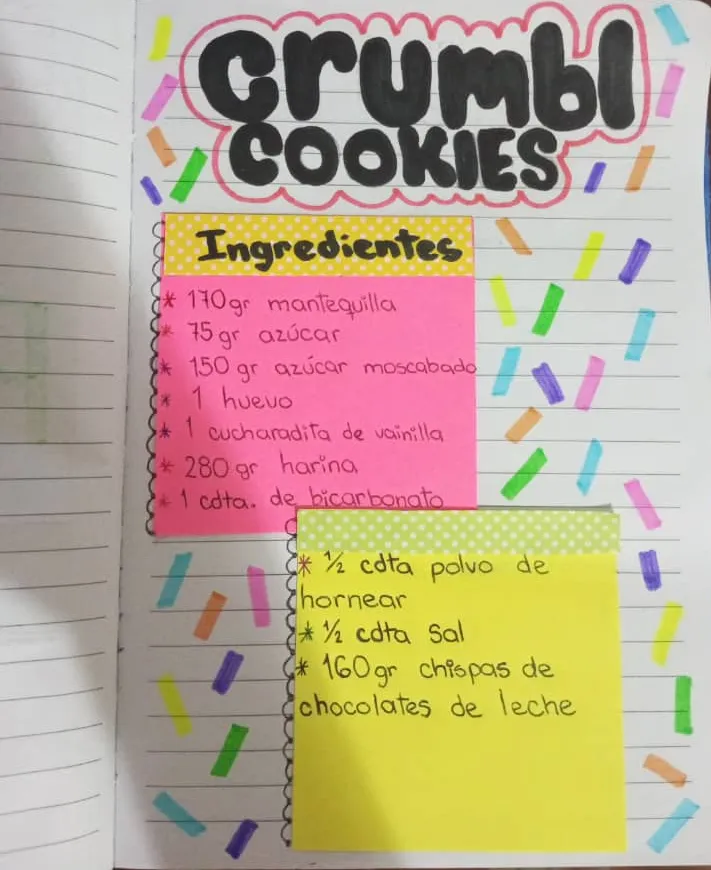 Crumbl
COOKIES
Ingredientes
* 170gr mantequilla
* 75 gr azúcar
* 150 gr azúcar moscabado
* 1 huevo
* 1 cucharadita de vainilla
* 280gr harina
* 1 cdta. de bicarbonato
* ½ cdta polvo de
hornear
* ½ cdta sal
* 160gr chispas de
chocolates de leche